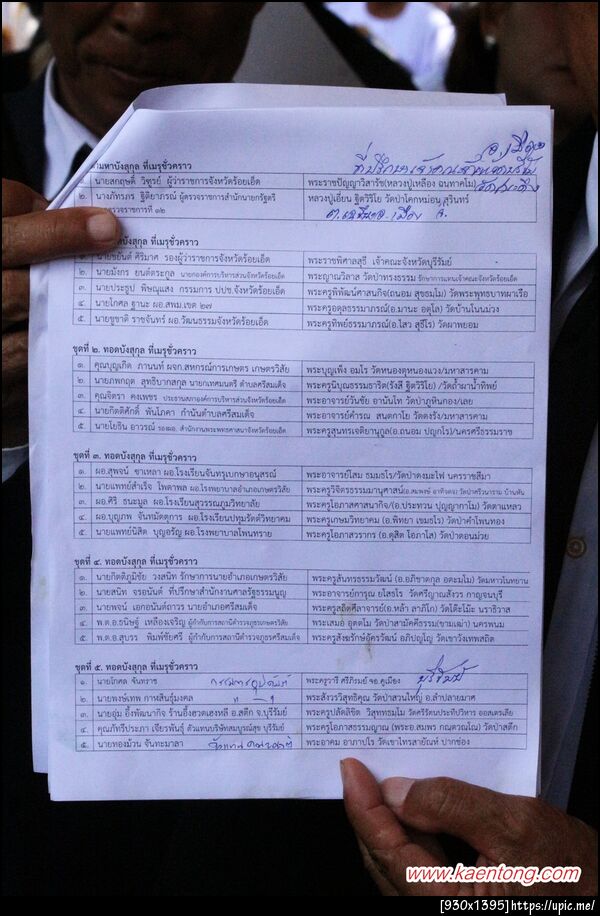 มหาบังสุกุล ที่เมรุชั่วคราว
๑. นายสกฤษดิ์ วิฑูรย์ ผู้ว่าราชการจังหวัดร้อยเอ็ด พระราชปัญญาวิสารัช(หลวงปู่เหลือง ฉนฺทาคโม)
๒. นางภัทรภร ฐิติยาภรณ์ ผู้ตรวจราชการสำนักนายกรัฐมนตรี หลวงปู่เอี่ยน ฐิตวิริโย วัดป่าโคกหม่อน สุรินทร์
ตรวจราชการที่ ๑๒
บังสุกุล ที่เมรุชั่วคราว
๑. ศิริมาศ รองผู้ว่าราชการจังหวัดร้อยเอ็ด พระราชพิศาลสุธี เจ้าคณะจังหวัดบุรีรัมย์
๒. นายมังกร ยนต์ตระกูล นายกองค์การบริหารส่วนจังหวัดร้อยเอ็ด พระญาณวิลาส วัดป่าทรงธรรม รักษาการแทนเจ้าคณะจังหวัดร้อยเอ็ด
๓. นายประธูป พิษณุแสง กรรมการ ปปช.จังหวัดร้อยเอ็ด พระครูพิพัฒน์ศาสนกิจ(ถนอม สุขธมฺโม) วัดพระพุทธบาทผาเรือ
๔. นายโกศล ฐานะ ผอ.สพม.เขต ๒๗ พระครูอดุลธรรมาภรณ์(อ.มานะ อตุโล) วัดบ้านโนนม่วง
๕. นายชูชาติ ราชจันทร์ ผอ.วัฒนธรรมจังหวัดร้อยเอ็ด พระครูทิพย์ธรรมาภรณ์(อ.ไสว สุธีโร) วัดผาพยอม
ชุดที่ ๒. ทอดบังสุกุล ที่เมรุชั่วคราว
๑. คุณบุญเกิด ภานนท์ ผจก.สหกรณ์การเกษตร เกษตรวิสัย พระบุญเพ็ง อมโร วัดหนองตุหนองแวง/มหาสารคาม
๒. นายภพกฤต สุทธิบากสกุล นายกเทศมนตรี ตำบลศรีสมเด็จ พระครูนิบุณธรรมธาริต(รังสี ฐิตวิริโย) /วัดถ้ำผาน้ำทิพย์
๓. คุณจิตรา คงเพชร ประธานสภาองค์การบริหารจังหวัดร้อยเอ็ด พระอาจารย์วันชัย อานันโท วัดป่าภูหินกอง/เลย
๔. นายกิตติศักดิ์ พันโภคา กำนันตำบลศรีสมเด็จ พระอาจารย์คำรณ สนฺตกาโย วัดดงรัง/มหาสารคาม
๕. นายโยธิน อาวรณ์ รองผอ. สำนักงานพระพุทธศาสนาจังหวัดร้อยเอ็ด พระครูสุนทรเจติยานุกูล(อ.ถนอม ปญฺกโร)/นครศรีธรรมราช
ชุดที่ ๓. ทอดบังสุกุล ที่เมรุชั่วคราว
๑. ผอ.สุพจน์ ซาเหลา ผอ.โรงเรียนจันทรุเบกษาอนุสรณ์ พระอาจารย์โสม ธมมธโร/วัดป่าดงมะไฟ นครราชสีมา
๒. นายแพทย์สำเร็จ โพดาพล ผอ.โรงพยาบาลอำเภอเกษตรวิสัย พระครูวิจิตรธรรมมานุศาสน์
๓. ผอ.ศิริ ธนะมูล ผอ.โรงเรียนสุวรรณภูมิวิทยาลัย พระครูโอภาสศาสนกิจ/(อ.ประทวน ปุญญาคาโม) วัดตาแหลว
๔. ผอ.บุญภพ จันทมัดตุการ ผอ.โรงเรียนปทุมรัตต์วิทยาคม พระครูเกษมวิทยาคม (อ.พิทยา เขมธโร) วัดป่าคำโพนทอง
๕. นายแพทย์นิสิต บุญอะรัญ ผอ.โรงพยาบาลโพนทราย พระครูโอภาสวรากร (อ.ดุสิต โอภาโส) วัดป่าดอนม่วย
ชุดที่ ๔. ทอดบังสุกุล ที่เมรุชั่วคราว
๑. นายกิตติภูมิชัย วงสนิท รักษาการนายอำเภอเกษตรวิสัย พระครูสันทรธรรมวัฒน์ (อ.อภิชาตกุล อตฺตมโม) วัดมหาวโนทยาน
๒. นายสนิท จรอนันต์ ที่ปรึกษาสำนักงานศาลรัฐธรรมนูญ พระอาจารย์การุณ ยโสธโร วัดศรีญาณสังวร กาญจนบุรี
๓. นายพจน์ เอกอนันต์ถาวร นายอำเภอศรีสมเด็จ พระครูสถิตศีลาจารย์(อ.หล้า ลาภิโก) วัดโต๊ะโม๊ะ นราธิวาส
๔. พ.ต.อ.ธนิษฐ์ เหลืองเจริญ ผู้กำกับการสถานีตำรวจภูธรเกษตรวิสัย พระเสมอ อุตตโม วัดป่าสามัคคีธรรม(ขามเฒ่า) นครพนม
๕. พ.ต.อ.สุบรร พิมพ์ชัยศรี ผู้กำกับการสถานีตำรวจภูธรศรีสมเด็จ พระครูสังฆรักษ์อัครวัฒน์ อภิปญฺโญ วัดเขาวังเทพสถิต
ชุดที่ ๕. ทอดบังสุกุล ที่เมรุชั่วคราว
๑. นายโกศล จันทราช พระครูวารี ศรีภิรมย์ จอ คูเมือง บุรีรัมย์
๒. นายพงษ์เทพ กาหสินธุ์มงคล พระสังวรวิสุทธิคุณ วัดป่าสวนใหญ่ อ.ลำปลายมาศ
๓. นายอุ่ม อึ้งพัฒนากิจ ร้านอึ้งฮวดเฮงหลี อ.สตึก จ.บุรีรัมย์ พระครูปลัดลิขิต วิสุทฺธมโม วัดศรีรัตนประทีปวิหาร ออสเตรเลีย
๔. คุณภัทรีประภา เจียรพันธุ์ ตัวแทนบริษัทสมบูรณ์สุข บุรีรัมย์ พระครูโอภาสธรรมญาณ (พระอ.สมพร กณตวณฺโณ) วัดป่าสตึก
๕. นายทองม้วน จันทะมาลา พระอาคม อาภาปโร วัดเขาไทรสายัณห์ ปากช่อง
www.kaentong.com
[930x1395]https://upic.me/